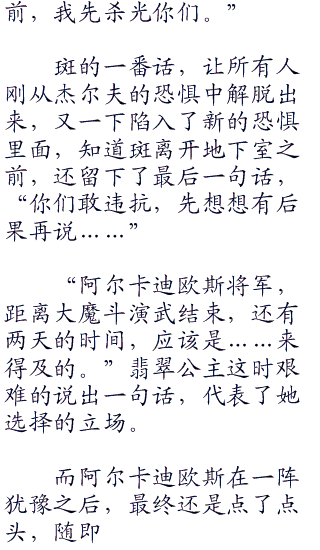 前，我先杀光你们。”
斑的一番话，让所有人
刚从杰尔夫的恐惧中解脱出
来，又一下陷入了新的恐惧
里面，知道斑离开地下室之
前，还留下了最后一句话，
“你们敢违抗，先想想有后
果再说……”
“阿尔卡迪欧斯将军，
距离大魔斗演武结束，还有
两天的时间，应该是……来
得及的。”翡翠公主这时艰
难的说出一句话，代表了她
选择的立场。
而阿尔卡迪欧斯在一阵
犹豫之后，最终还是点了点
头，随即